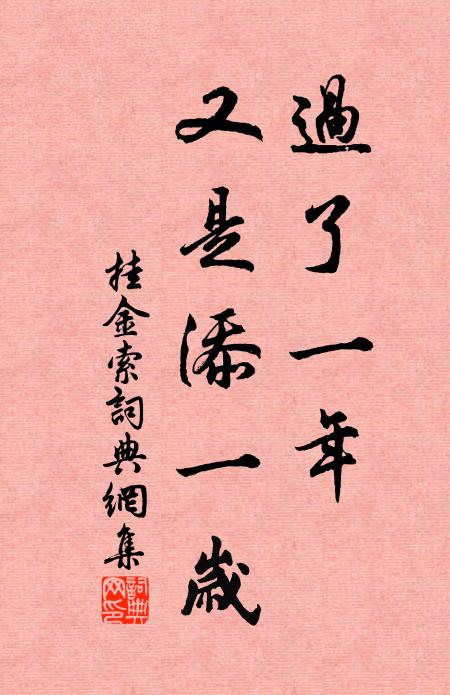 過了一年
又是添一歲
挂金索詞典網集
詞典网印